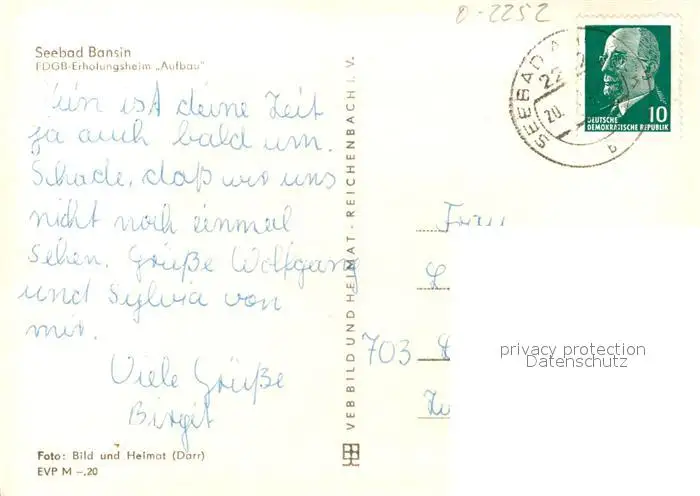 0-2252
Seebad Bansin
FDGB-Erholungsheim „Aufbau"
Nun ist deine Zeit
ja auch bald um.
Schade, daß wir uns
nicht noch einmal
sehen. Grüße Wolfgang
und Sylvia von
mir.
Viele Grüße
Birgit
Foto: Bild und Heimat (Darr)
EVP M –,20
VEB BILD UND HEIMAT - REICHENBACH I. V.
SEEBAD
22
20.
b
10
DEUTSCHE
DEMOKRATISCHE REPUBLIK
Frau
L
703
privacy protection
Datenschutz